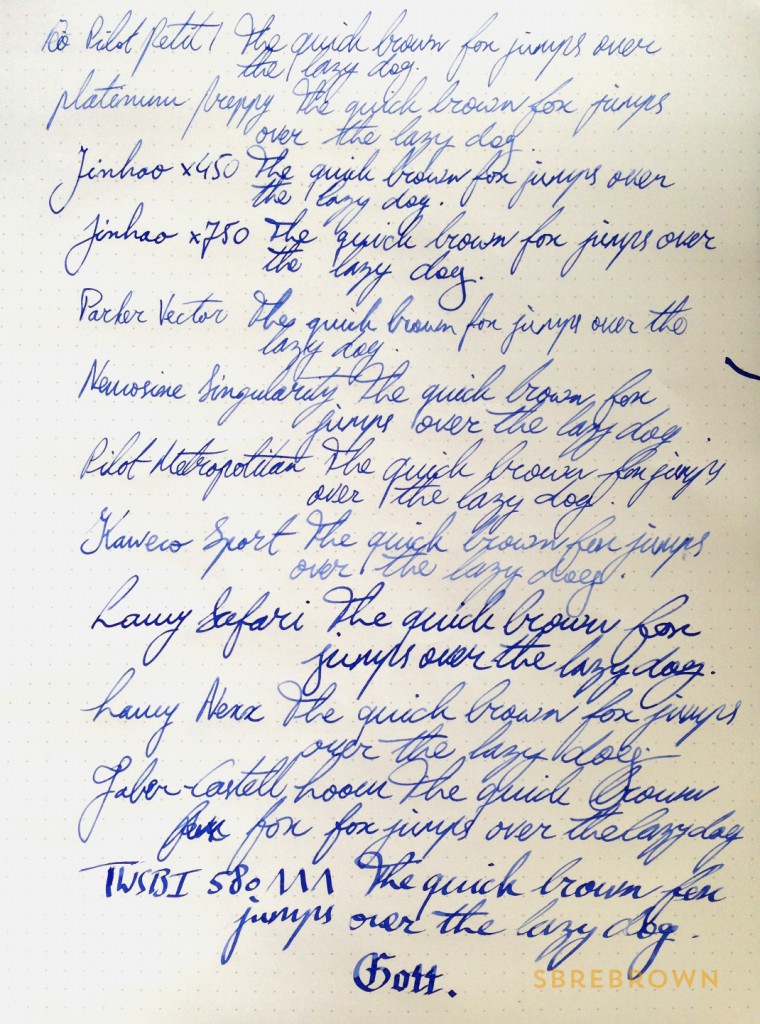 Pilot Petit 1 The quick brown fox jumps over
the lazy dog.
platinum preppy The quick brown fox jumps
over the lazy dog.
Jinhao x450 The quick brown fox jumps over
the lazy dog.
Jinhao x750 The quick brown fox jumps over
the lazy dog.
Parker Vector The quick brown fox jumps over the
lazy dog.
Nemosine Singularity The quick brown fox
jumps over the lazy dog.
Pilot Metropolitan The quick brown fox jumps
over the lazy dog.
Kaweco Sport The quick brown fox jumps
over the lazy dog.
Lamy Safari The quick brown fox
jumps over the lazy dog.
Lamy Nexx The quick brown fox jumps
over the lazy dog
Faber-Castell Loom The quick Brown
fox fox jumps over the lazy dog
TWSBI 580 The quick brown fox
jumps over the lazy dog.
Gott.
SBREBROWN